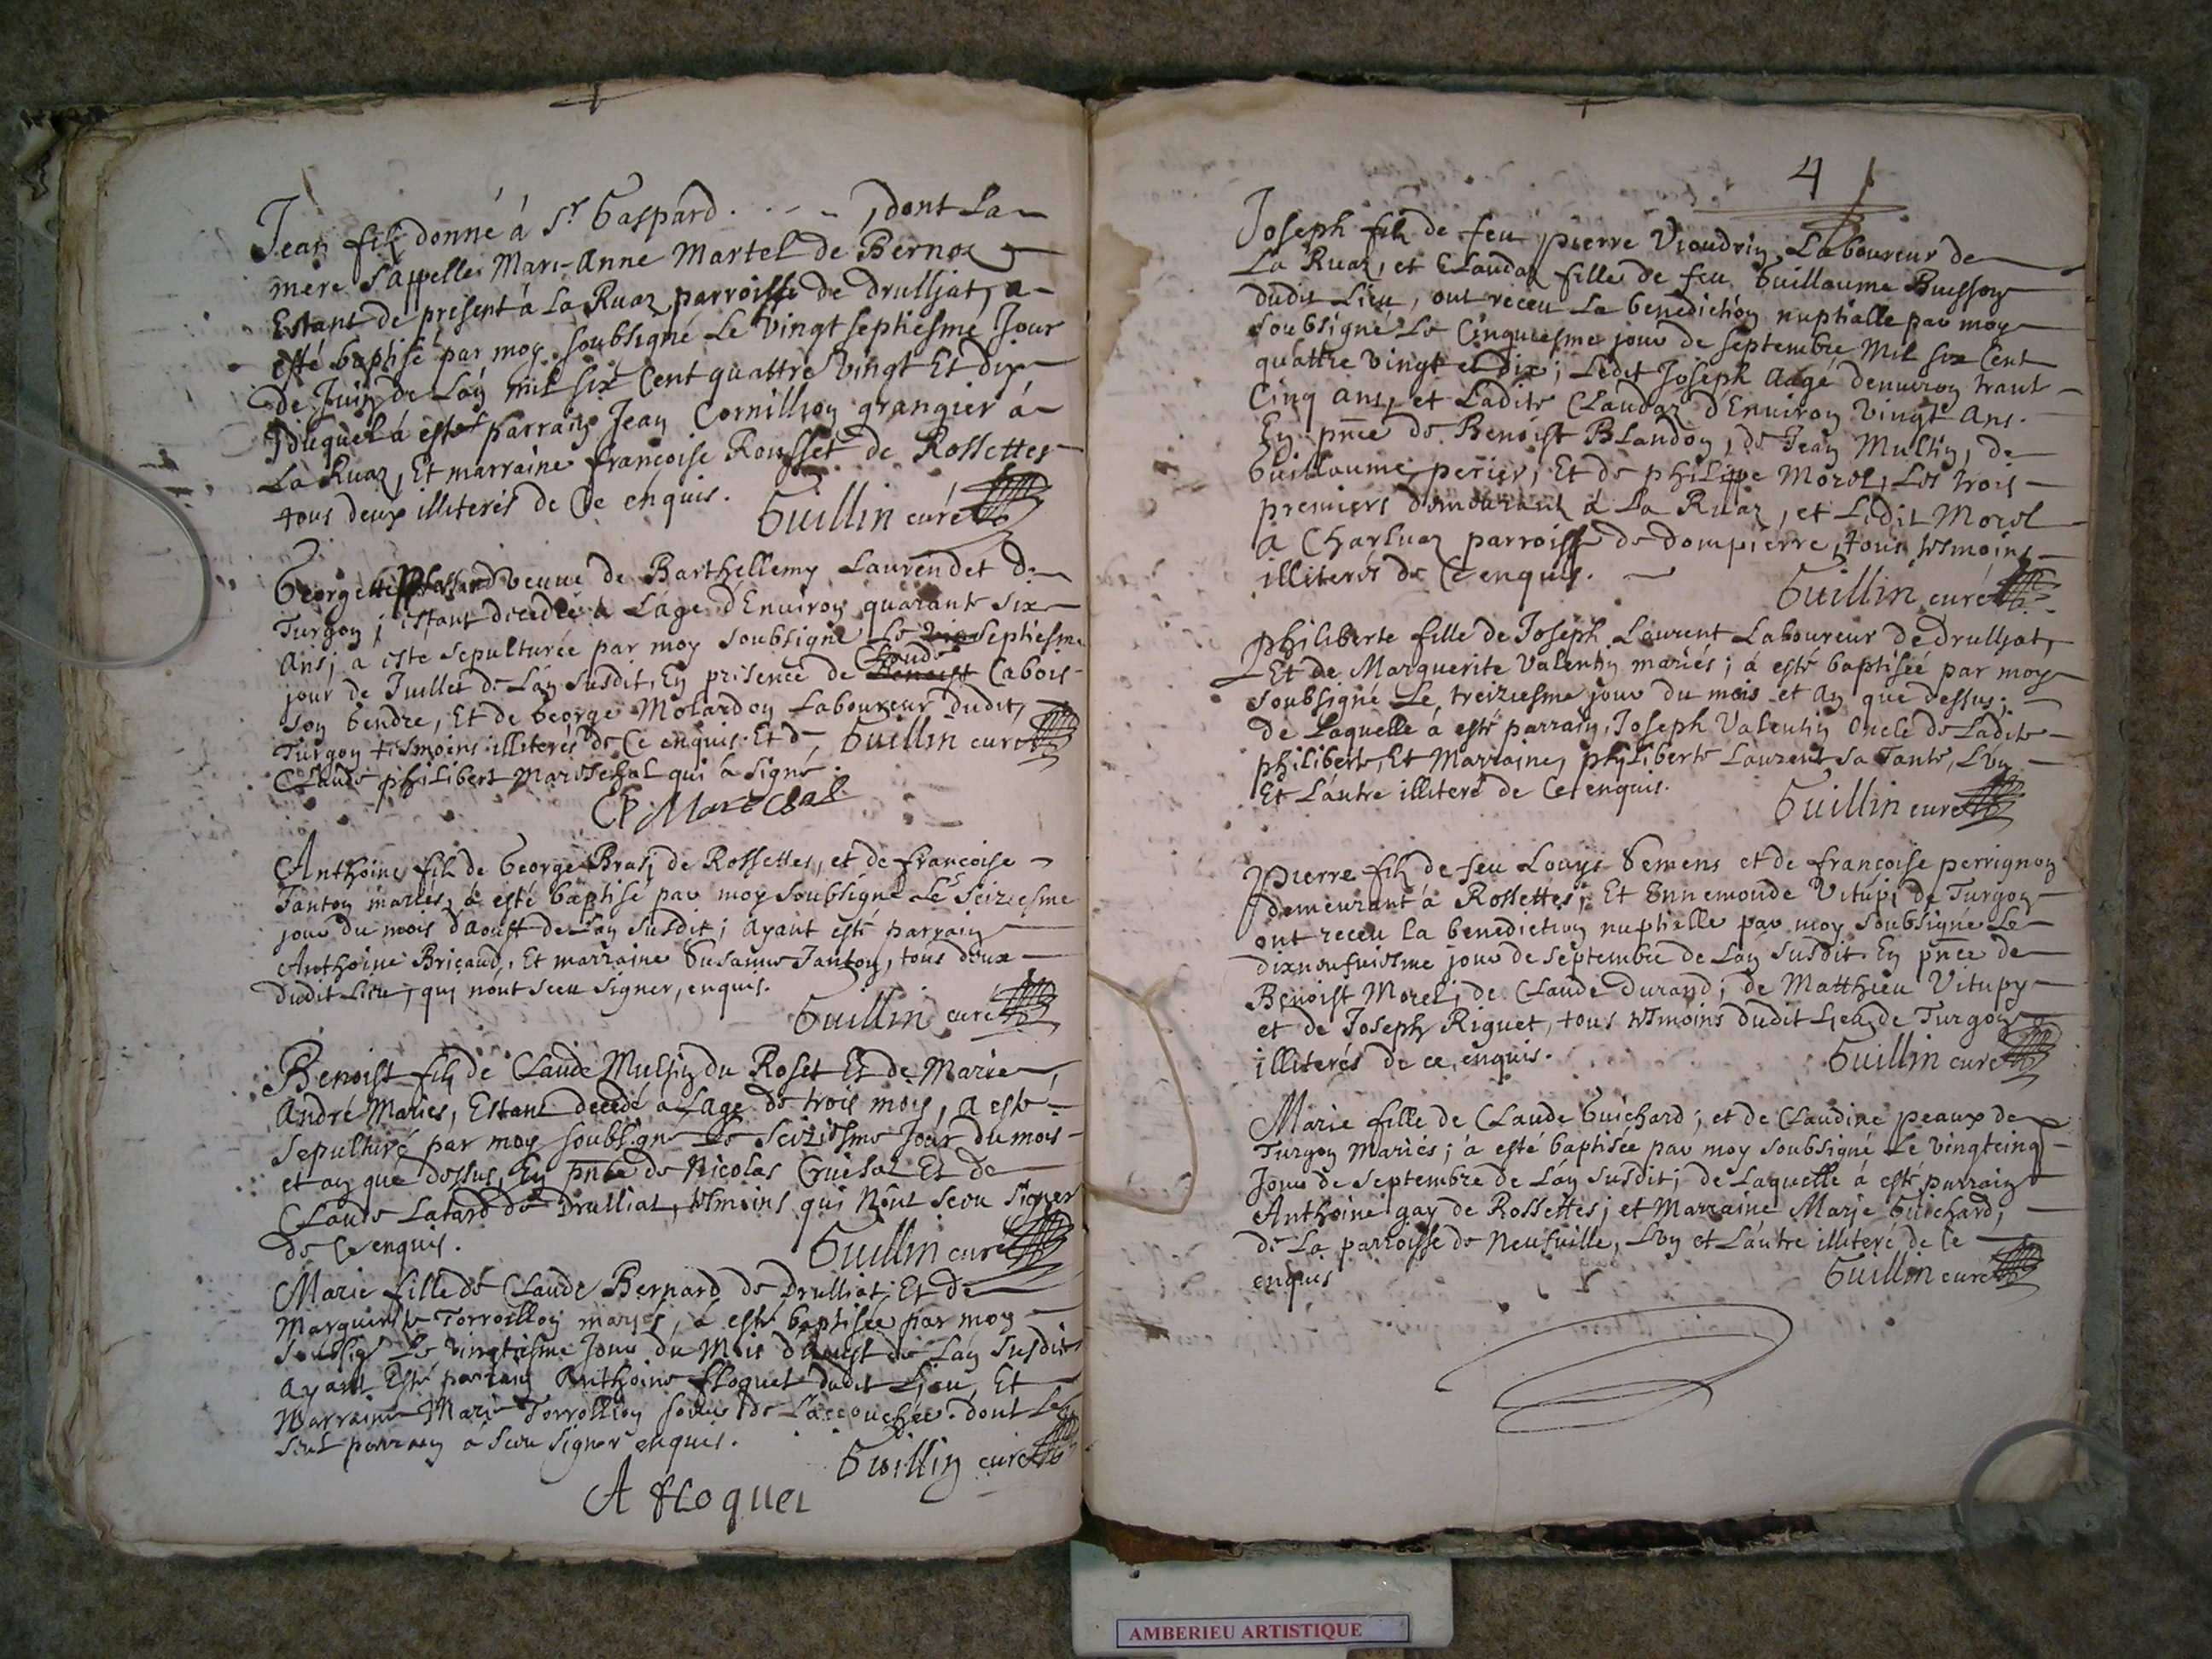 Jean filz donné á Sr Gaspard . . - - , dont La
mere s'appelle Marie-Anne Martel de Bernoz
Estant de present á La Ruaz parroisse de drulljat, a
esté baptisé par moy soubsigné Le vingt septiesme Jour
de Juin de L'an mil six Cent quattre vingt Et dix
Duquel á esté parrain Jean Cornillion grangier á
La Ruaz, Et marraine françoise Rousset de Rossettes
tous deux illiterés de Ce enquis. Guillin curé
Georgette veuve de Barthellemy Laurendet de
Turgon; estant decedée à L'age d'Environ quarante six
Ans; a esté sepulturée par moy soubsigné Le septiesme
jour de Juillet de L'an susdit, En presence de Claude Cabois
son Gendre, Et de George Molardon Laboureur dudit
Turgon tesmoins illiterés de Ce enquis. Et de Guillin curé
Claude philibert Mareschal qui à signé.
CP Mareschal
Anthoine filz de George Bras, de Rossettes, et de francoise
Tanton mariés, à esté baptisé par moy soubsigné Le Seiziesme
jour du mois d'aoust de L'an susdit; ayant esté parrain
Anthoine Bricaud, Et marraine Susanne Tanton, tous deux
dudit Lieu, qui n'ont sceu signer, enquis.
Guillin curé
Benoist filz de Claude Mulsin du Roset Et de Marie
André Mariés, Estant decedé a L'age de trois mois, a esté
sepulturé par moy soubsigné Le Seiziesme Jour du mois
et an que dessus, En pnce de Nicolas Cruisat Et de
Claude Latard de Drulliat, tesmoins qui N'ont sceu signer
de Ce enquis. Guillin curé
Marie fille de Claude Bernard de Drulliat; Et de
Marguerite Torroillon mariés, á esté baptisée par moy
soubsigé Le vingtiesme Jour du Mois d'Aoust de L'an susdit
ayant Esté parrain Anthoine ffloquet dudit Lieu, Et
Marraine Marie Torrollion soeur de L'accouchée. dont Le
seul parrain á sceu signer enquis. Guillin curé
A ffloquet
4
Joseph filz de feu pierre Vioudrin, Laboureur de
La Ruaz, et Claudaz fille de feu Guillaume Buisson
dudit Lieu, ont receu La benediction nuptialle par moy
soubsigné Le Cinquiesme jour de septembre Mil six Cent
quattre vingt et dix; Ledit Joseph Aagé d'environ trant
Cinq ans, et Ladite Claudaz d'Environ vingt Ans.
En pnce de Benoist Blandon, de Jean Mulsin, de
Guillaume perier, Et de philippe Morel, Les trois
premiers demeurant á La Ruaz, et Ledit Morel
à Charluaz parroisse de dompierre, tous tesmoins
illiterés de Ce enquis. Guillin curé
philiberte fille de Joseph Laurent Laboureur de drulljat,
Et de Marguerite Valentin mariés; á esté baptisée par moy
soubsigné Le, treiziesme jour du mois et an que dessus;
de Laquelle á esté parrain, Joseph Valentin Oncle de Ladite
philiberte, Et Marraine, philiberte Laurent sa Tante, L'un
Et L'autre illiteré de Ce enquis. Guillin curé
pierre filz de feu Louys Semens et de françoise perrignon
demeurant á Rossettes; Et Ennemonde Vitupi de Turgon
ont receu la benediction nuptielle par moy soubsigné Le
dixneufuiesme jour de septembre de L'an susdit. En pnce de
Benoist Morel; de Claude durand; de Matthieu Vitupy
et de Joseph Riguet, tous tesmoins dudit Lieu de Turgon
illiterés de ce enquis. Guillin curé
Marie fille de Claude Guichard; et de Claudine peaux de
Turgon Mariés; á esté baptisée par moy soubsigné Le vingtcinq
Jour de septembre de L'an susdit; de Laquelle á esté parrain
Anthoine gay de Rossettes; et Marraine Marie Guichard,
de La parroisse de Neufuille, L'un et L'autre illiteré de Ce
enquis Guillin curé
AMBERIEU ARTISTIQUE